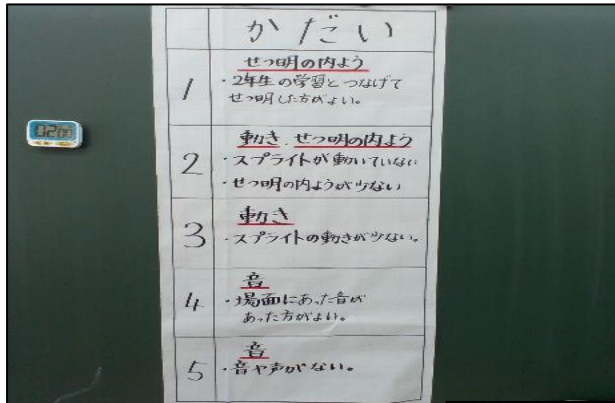 かだい
1
せつ明の内よう
・2年生の学習とつなげて
せつ明した方がよい。
2
動き・せつ明の内よう
・スプライトが動いていない
・せつ明の内ようが少ない
3
動き
・スプライトの動きが少ない。
4
音
・場面にあった音が
あった方がよい。
5
音
・音や声がない。
02:00